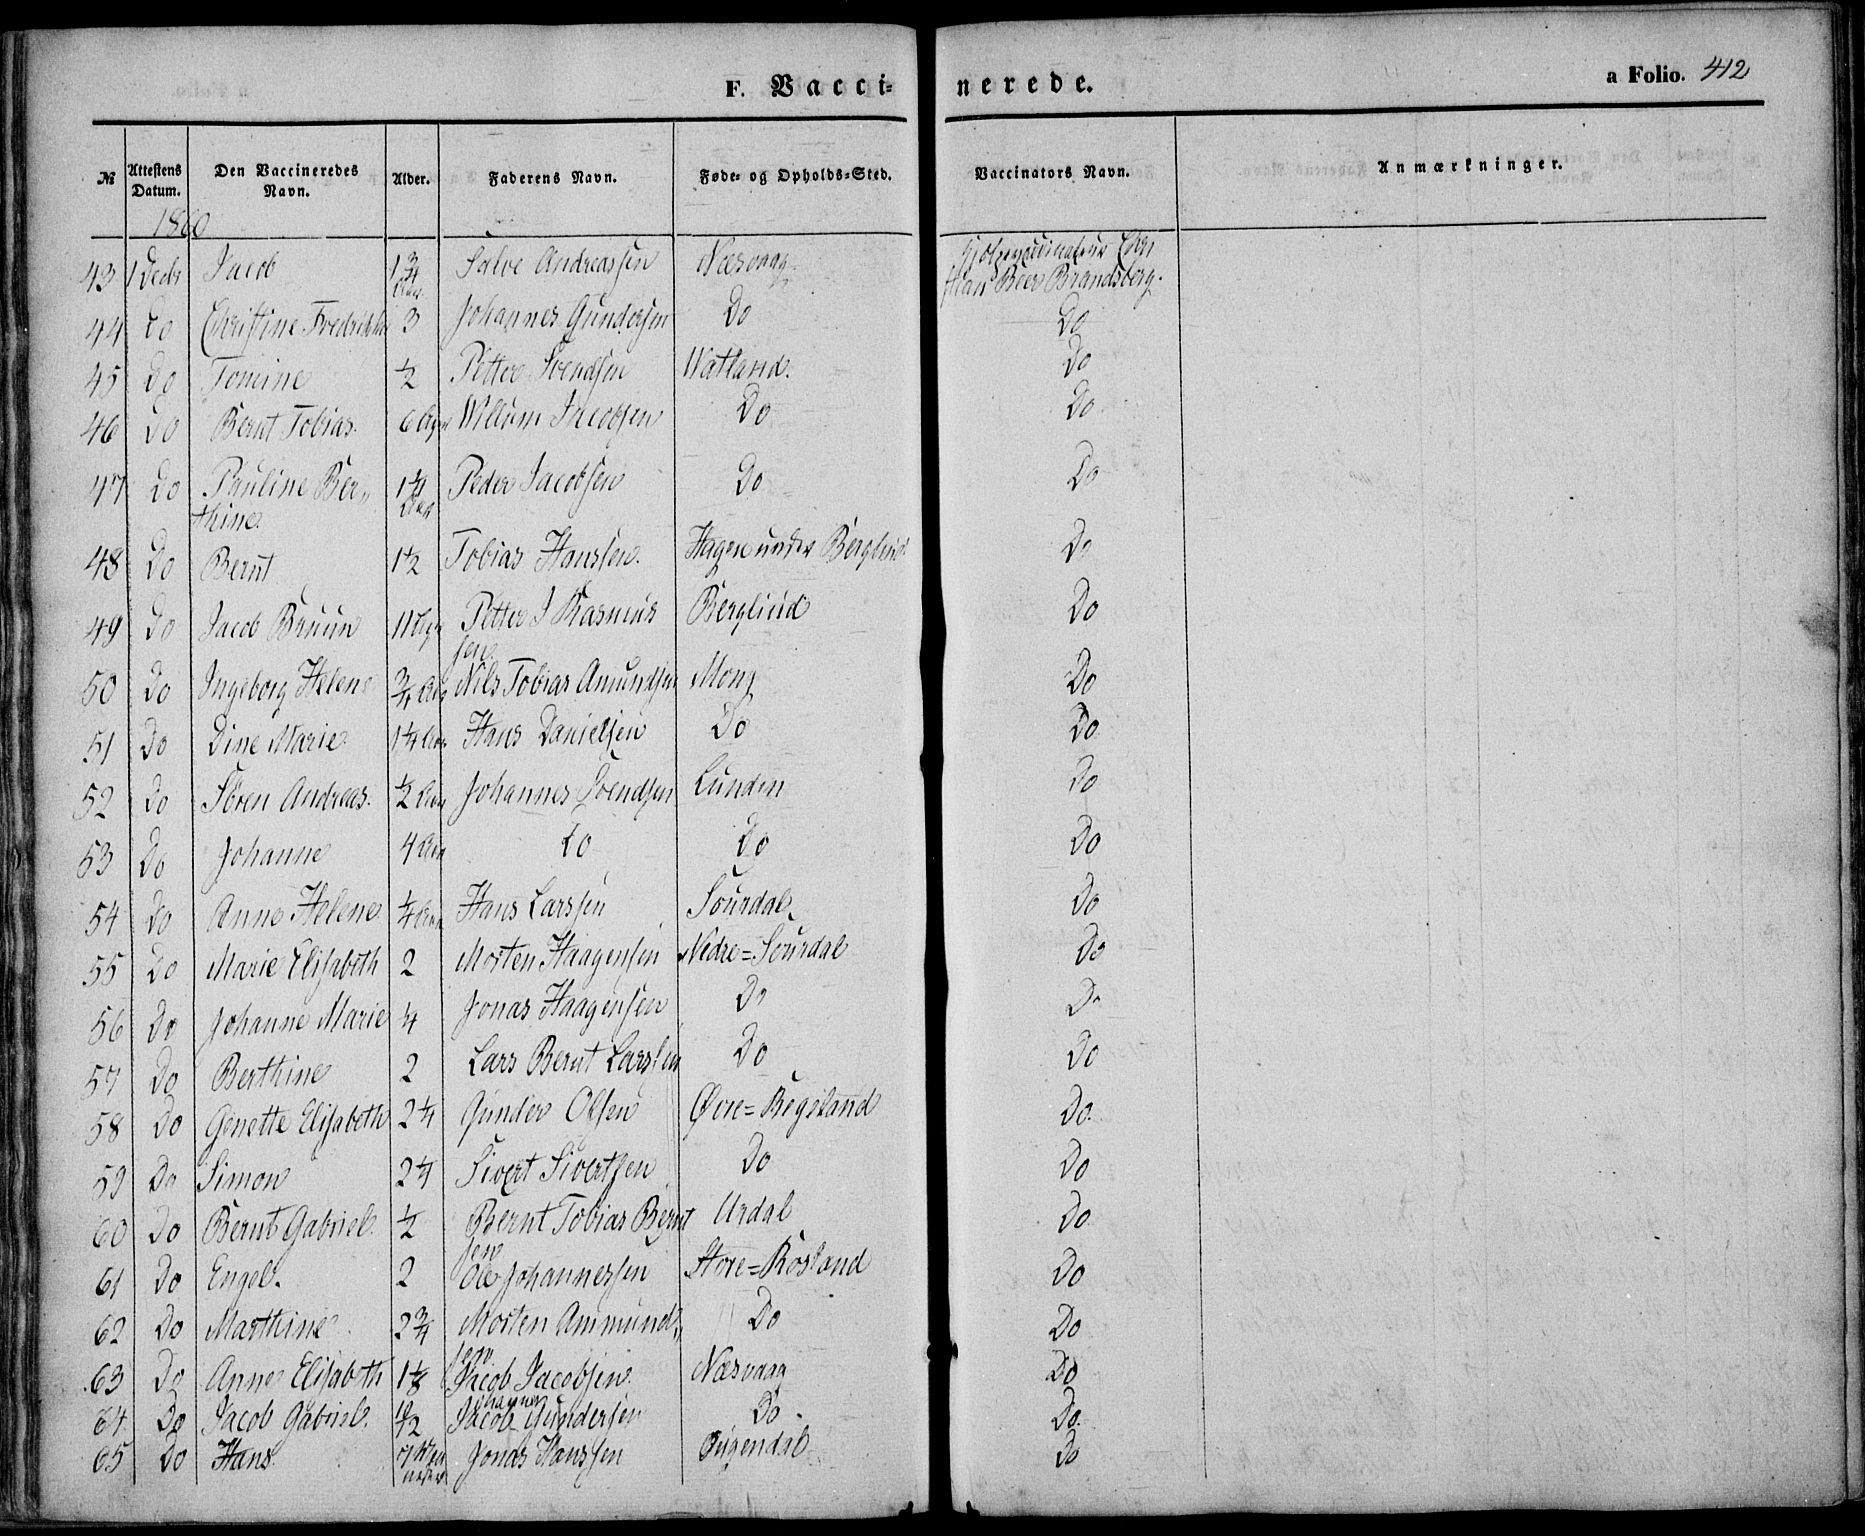 F. Vacci=nerede.
a Folio. 412
№ Attestens Datum. Den Vaccineredes Navn. Alder. Faderens Navn. Føde- og Opholds-Sted. Vaccinators Navn. Anmærkninger.
1860
43 1 Decbr Jacob 1 3/4 Aar Salve Andreassen Næsvaag
Beer Brandsberg.
44 Do Christine Fredrikke 3 Johannes Gundersen Do Do
45 Do Tomine 1/2 Petter Svendsen Watland. Do
46 Do Bernt Tobias. 6 Willum Jacobsen Do Do
47 Do Pauline Ber„ 1 1/4 Aar Peder Jacobsen Do Do
thine.
48 Do Bernt 1 1/2 Tobias Hanssen. Hagen under Berglund Do
49 Do Jacob Bruun 11 Petter J Rasmus Berglund Do
sen.
50 Do Ingeborg Helene 3/4 Aar Nils Tobias Amundsen Mong Do
51 Do Dine Marie 1 1/4 Aar Hans Danielsen Do Do
52 Do Sören Andreas. 1/2 Aar Johannes Svendsen Lunden Do
53 Do Johanne 4 Aar Do Do Do
54 Do Anne Helene 1/4 Aar Hans Larssen Sourdal. Do
55 Do Marie Elisabeth 2 Morten Haagensen Nedre=Sourdal Do
56 Do Johanne Marie 1/4 Jonas Haagensen Do Do
57 Do Berthine 2 Lars Bernt Larssen Do Do
58 Do Genette Elisabeth 2 1/4 Gunder Olsen Øvre=Regeland Do.
59 Do Simon 2 1/4 Sivert Sivertsen Do Do
60 Do Bernt Gabriel. 1/2 Bernt Tobias Bernt Urdal Do
sen
61 Do Engel. 2 Ole Johannessen Store=Rosland Do
62 Do Marthine 2 3/4 Morten Ammund„ Do Do
sen
63 Do Anne Elisabeth 1 1/8 Jacob Jacobsen. Næsvaag Do
64 Do Jacob Gabriel. Jacob Gundersen Do. Do.
65 Do Hans Jonas Hanssen Do